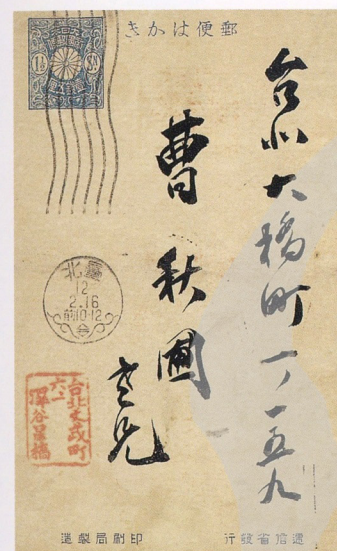 郵便はかき
台北大橋町一ノ一五九
曹秋圃
老兄
1½ 1½
臺北
12
2.16
前10-12
台北文武町
六ノ一
深谷星橋
遞信省發行
印刷局製造